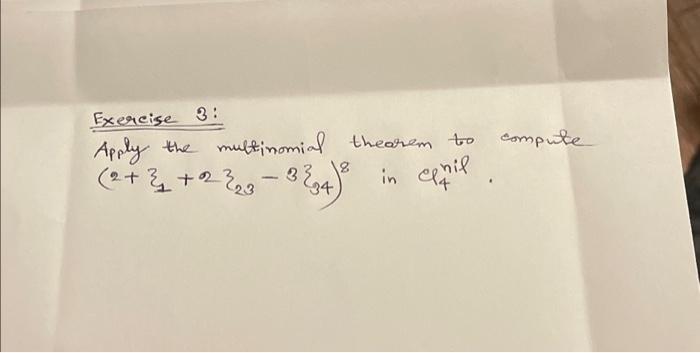 Exercise 3:
Apply the multinomial theorem to compute
(2+ξ₁+2ξ₂₃-3ξ₃₄)⁸ in Cl₄ⁿⁱˡ.